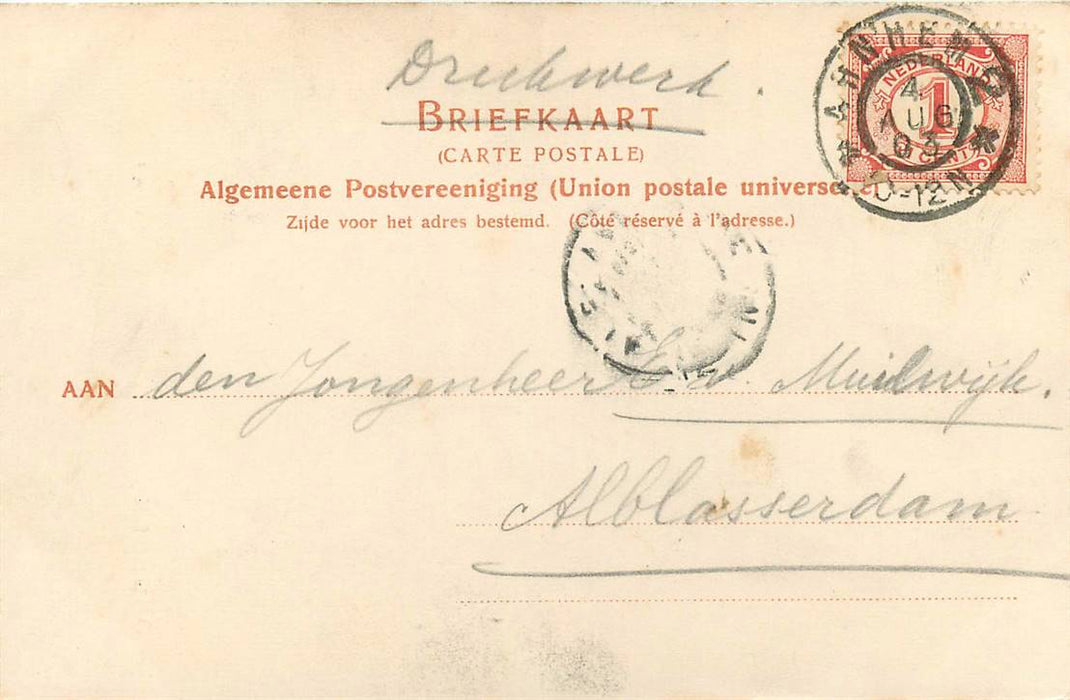 Drukwerk.
BRIEFKAART
(CARTE POSTALE)
Algemeene Postvereeniging (Union postale universe
Zijde voor het adres bestemd. (Côté réservé à l'adresse.)
ARNHEM 2
4 AUG 03
10-12N
NEDERLAND
1
CENT
AAN den Jongenheer E v. Muilwijk.
Alblasserdam